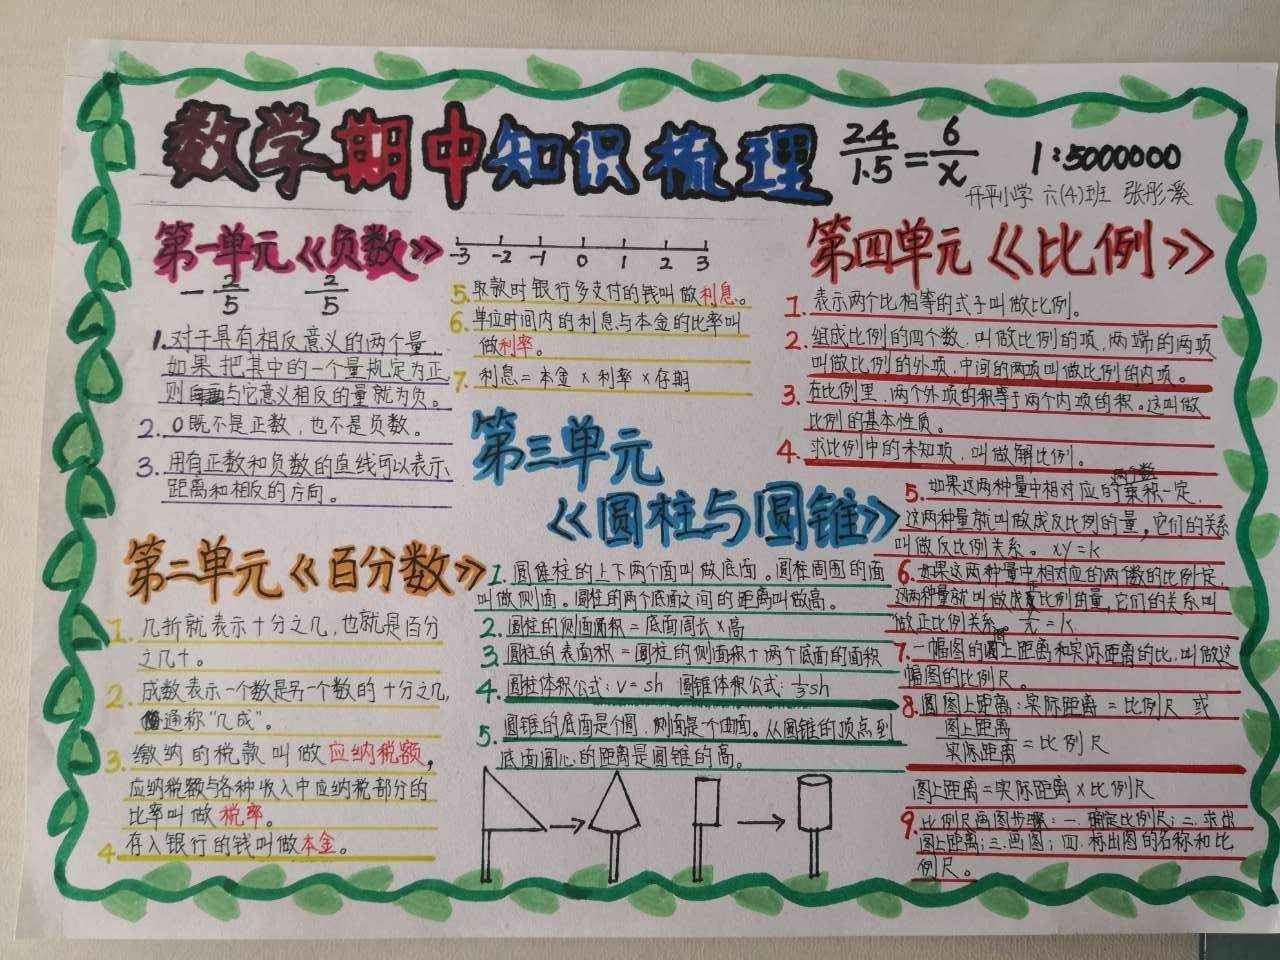 数学期中知识梳理
24/1.5=6/x
1:5000000
开平小学 六(4)班 张彤溪
第一单元《负数》
-2/5 2/5
1.对于具有相反意义的两个量,
如果把其中的一个量规定为正
则与它意义相反的量就为负。
2.0既不是正数,也不是负数。
3.用有正数和负数的直线可以表示
距离和相反的方向。
第二单元《百分数》
1.几折就表示十分之几,也就是百分
之几十。
2.成数表示一个数是另一个数的十分之几,
通称“几成”。
3.缴纳的税款叫做应纳税额,
应纳税额与各种收入中应纳税部分的
比率叫做税率。
4.存入银行的钱叫做本金。
-3 -2 -1 0 1 2 3
5.取款时银行多支付的钱叫做利息。
6.单位时间内的利息与本金的比率叫
做利率。
7.利息=本金×利率×存期
第三单元
《圆柱与圆锥》
1.圆锥柱的上下两个面叫做底面。圆柱周围的面
叫做侧面。圆柱的两个底面之间的距离叫做高。
2.圆柱的侧面面积=底面周长×高
3.圆柱的表面积=圆柱的侧面积+两个底面的面积
4.圆柱体积公式:V=sh 圆锥体积公式:1/3sh
5.圆锥的底面是个圆,侧面是个曲面。从圆锥的顶点到
底面圆心的距离是圆锥的高。
第四单元《比例》
1.表示两个比相等的式子叫做比例。
2.组成比例的四个数,叫做比例的项,两端的两项
叫做比例的外项,中间的两项叫做比例的内项。
3.在比例里,两个外项的积等于两个内项的积。这叫做
比例的基本性质。
4.求比例中的未知项,叫做解比例。
两个数
5.如果这两种量中相对应的乘积一定,
这两种量就叫做成反比例的量,它们的关系
叫做反比例关系。xy=k
6.如果这两种量中相对应的两个数的比例定,
这两种量就叫做成正比例的量,它们的关系叫
做正比例关系。y/x=k
7.一幅图的图上距离和实际距离的比,叫做这
幅图的比例尺。
8.图上距离:实际距离=比例尺 或
图上距离/实际距离=比例尺
图上距离=实际距离×比例尺
9.比例尺画图步骤:一.确定比例尺;二.求出
图上距离;三.画图;四.标出图的名称和比
例尺。